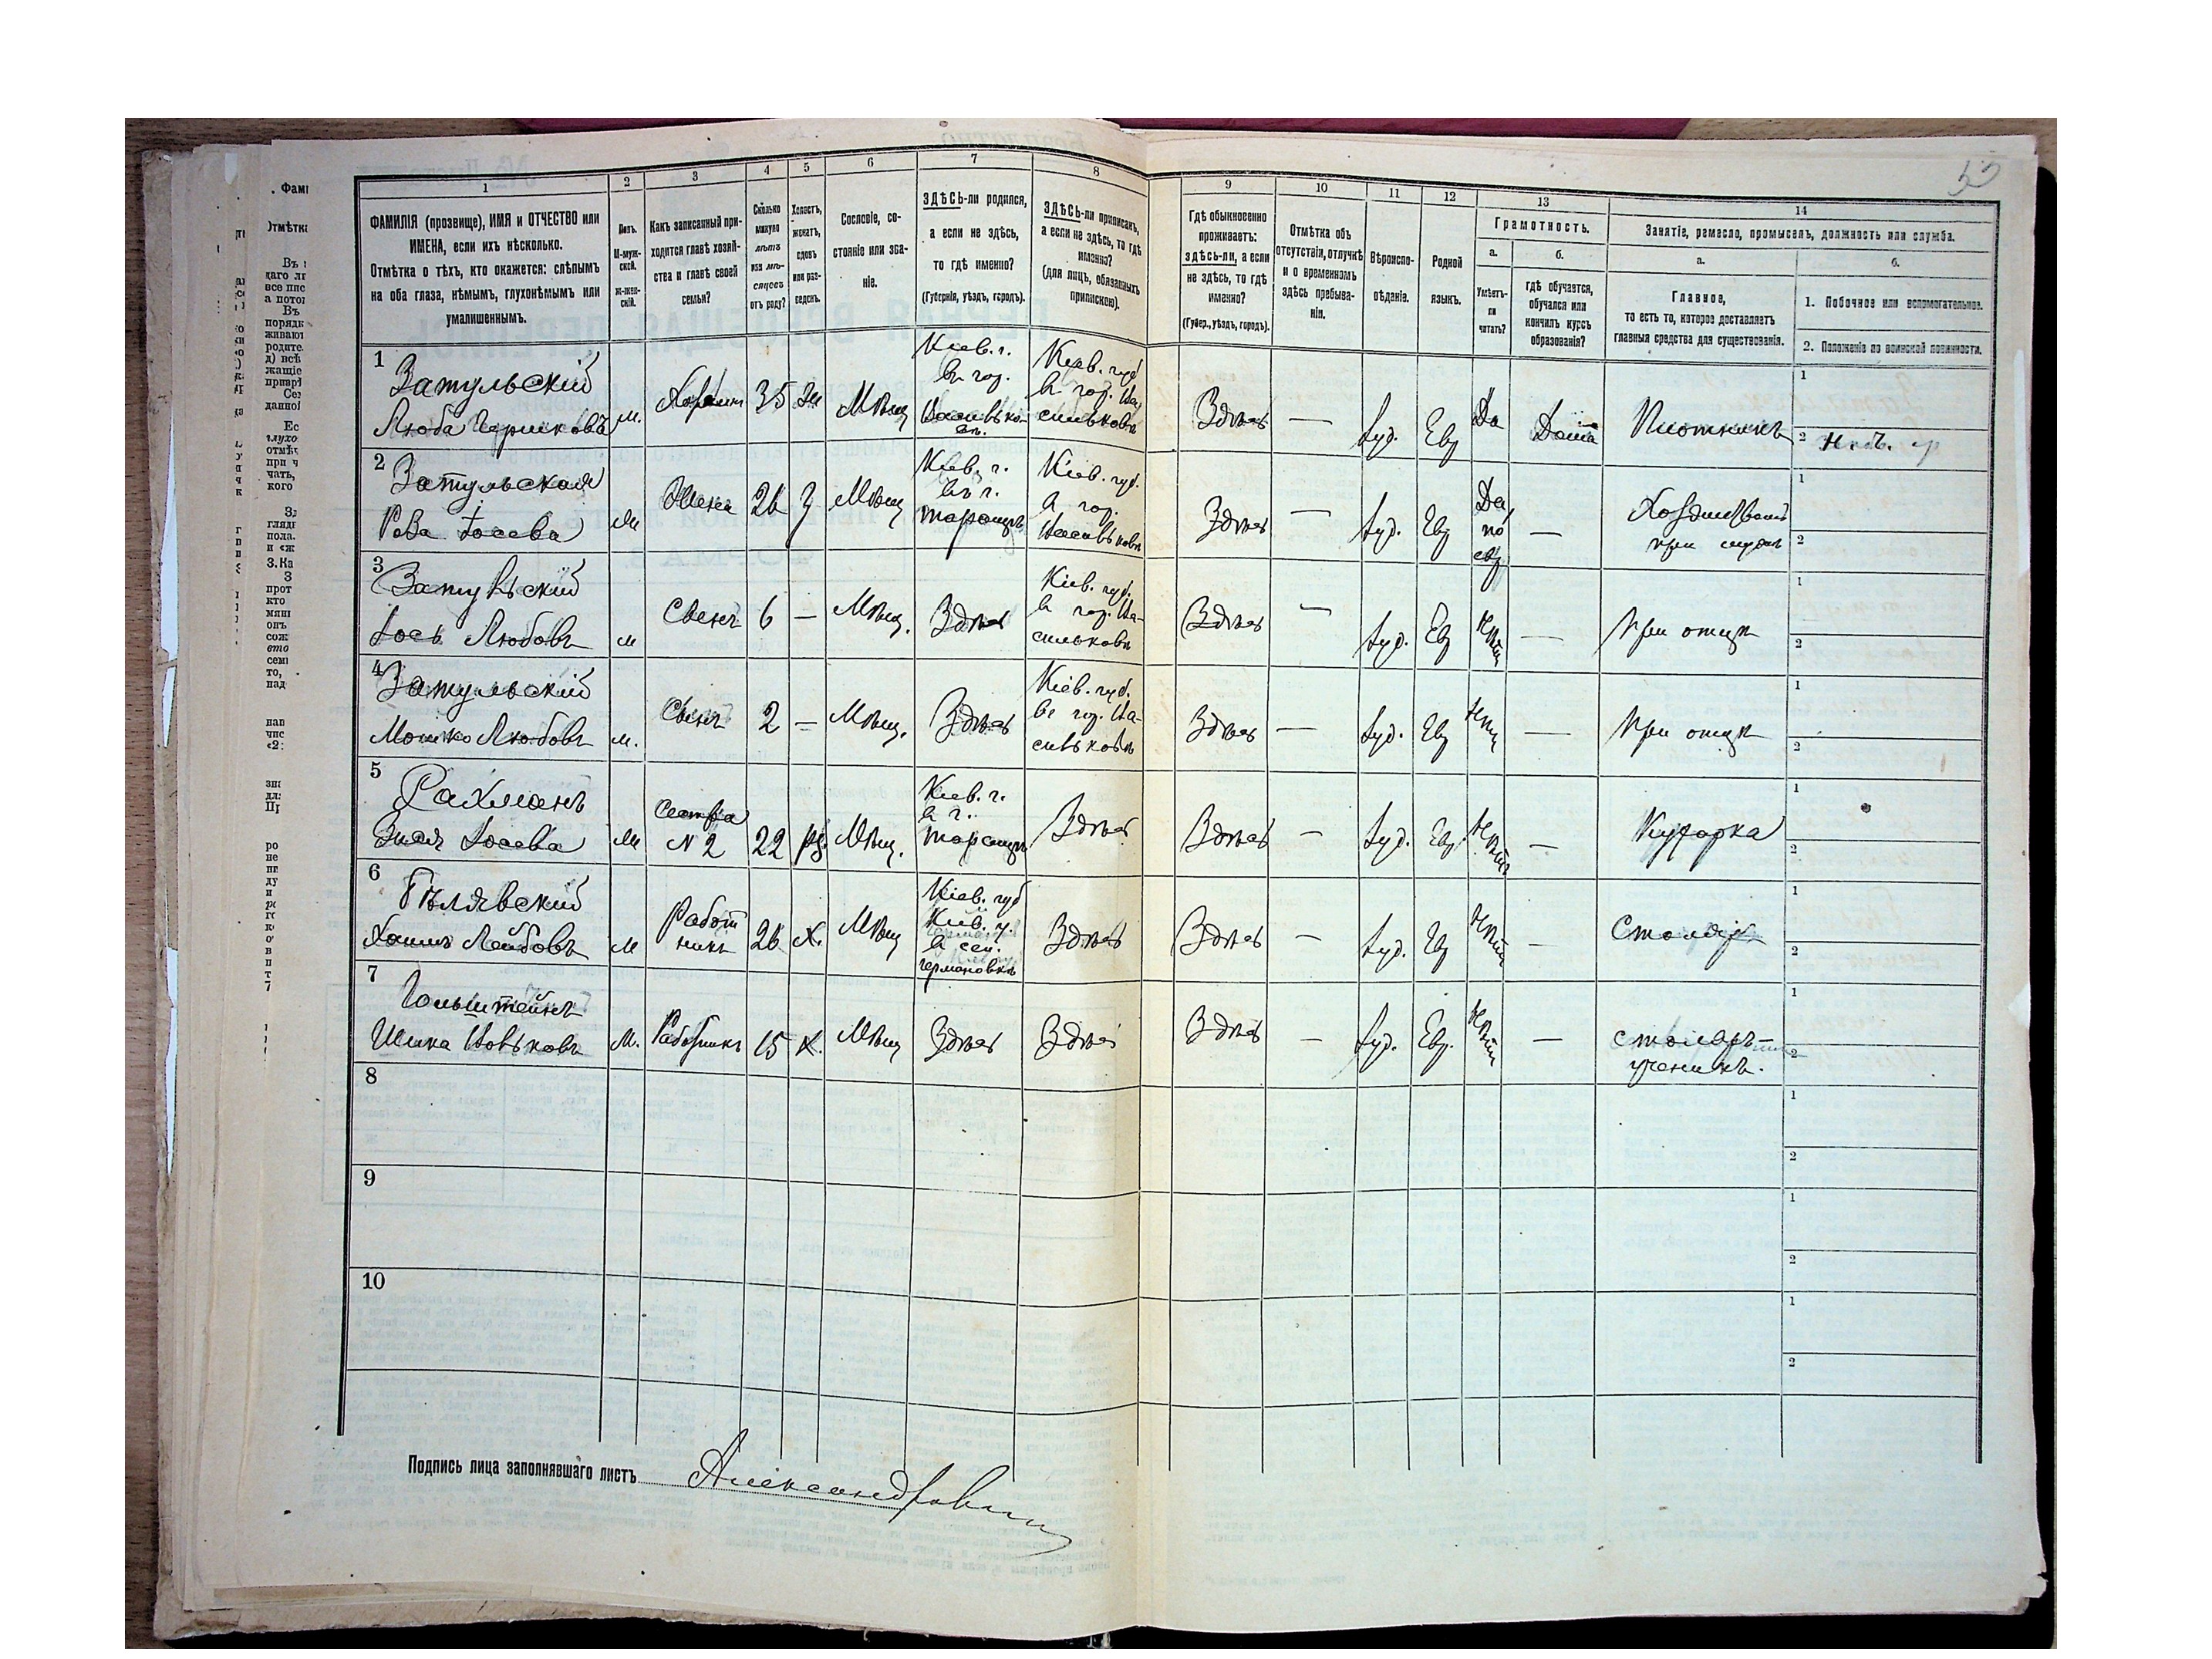 53
1 2 3 4 5 6 7 8 9 10 11 12 13 14
ФАМИЛІЯ (прозвище), ИМЯ и ОТЧЕСТВО или
ИМЕНА, если ихъ нѣсколько.
Отмѣтка о тѣхъ, кто окажется: слѣпымъ
на оба глаза, нѣмымъ, глухонѣмымъ или
умалишеннымъ.
Полъ.
М-муж-
ской.
ж-жен-
скій.
Какъ записанный при-
ходится главѣ хозяй-
ства и главѣ своей
семьи?
Сколько
минуло
лѣтъ
или мѣ-
сяцевъ
отъ роду?
Холостъ,
женатъ,
вдовъ
или раз-
веденъ.
Сословіе, со-
стояніе или зва-
ніе.
ЗДѢСЬ-ли родился,
а если не здѣсь,
то гдѣ именно?
(Губернія, уѣздъ, городъ).
ЗДѢСЬ-ли приписанъ,
а если не здѣсь, то гдѣ
именно?
(для лицъ, обязанныхъ
припискою).
Гдѣ обыкновенно
проживаетъ:
здѣсь-ли, а если
не здѣсь, то гдѣ
именно?
(Губер., уѣздъ, городъ).
Отмѣтка объ
отсутствіи, отлучкѣ
и о временномъ
здѣсь пребыва-
ніи.
Вѣроиспо-
вѣданіе.
Родной
языкъ.
Грамотность.
а. б.
Умѣетъ-
ли
читать?
гдѣ обучается,
обучался или
кончилъ курсъ
образованія?
Занятіе, ремесло, промыселъ, должность или служба.
а. б.
Главное,
то есть то, которое доставляетъ
главныя средства для существованія.
1. Побочное или вспомогательное.
2. Положеніе по воинской повинности.
1
Затульскій
Люба
м. 35 Мѣщ
Кіев. г.
въ гор.
Кіев. губ
в гор. Ва-
сильковѣ
Здѣсь — Іуд. Евр Да Дома Плотникъ
1
2
2
Затульская
Іосева
м Жена 26 Мѣщ
Кіев. г.
въ г.
таращѣ
Кіев. губ.
в гор.
Васильковѣ
Здѣсь — Іуд. Евр
Да
по
евр
—
при мужѣ
1
2
3
Затульскій
Іось Любовъ
м Сынъ 6 — Мѣщ. Здѣсь
Кіев. губ.
в гор. Ва-
сильковѣ
Здѣсь — Іуд. Евр Нѣтъ — При отцѣ
1
2
4
Затульскій
Мошко Любовъ
м. Сынъ 2 — Мѣщ. Здѣсь
Кіев. губ.
въ гор. Ва-
сильковѣ
Здѣсь — Іуд. Евр Нѣтъ — При отцѣ
1
2
5
Рахманъ
Іосева
м
Сестра
N 2
22 Мѣщ.
Кіев. г.
в г.
таращѣ
Здѣсь Здѣсь — Іуд. Евр Нѣтъ — Кухарка
1
2
6
Бѣлявскій
Хаимъ Лейбовъ
м
Работ
никъ
26 х. Мѣщ
Кіев. губ
Кіев. у.
в сел.
германовкѣ
Здѣсь Здѣсь — Іуд. Евр Нѣтъ — Столяръ
1
2
7
Гольштейнъ
Шика
м. Работникъ 15 х. Мѣщ Здѣсь Здѣсь Здѣсь — Іуд. Евр. Нѣтъ —
столяръ-
ученикъ.
1
2
8
1
2
9
1
2
10
1
2
Подпись лица заполнявшаго листъ